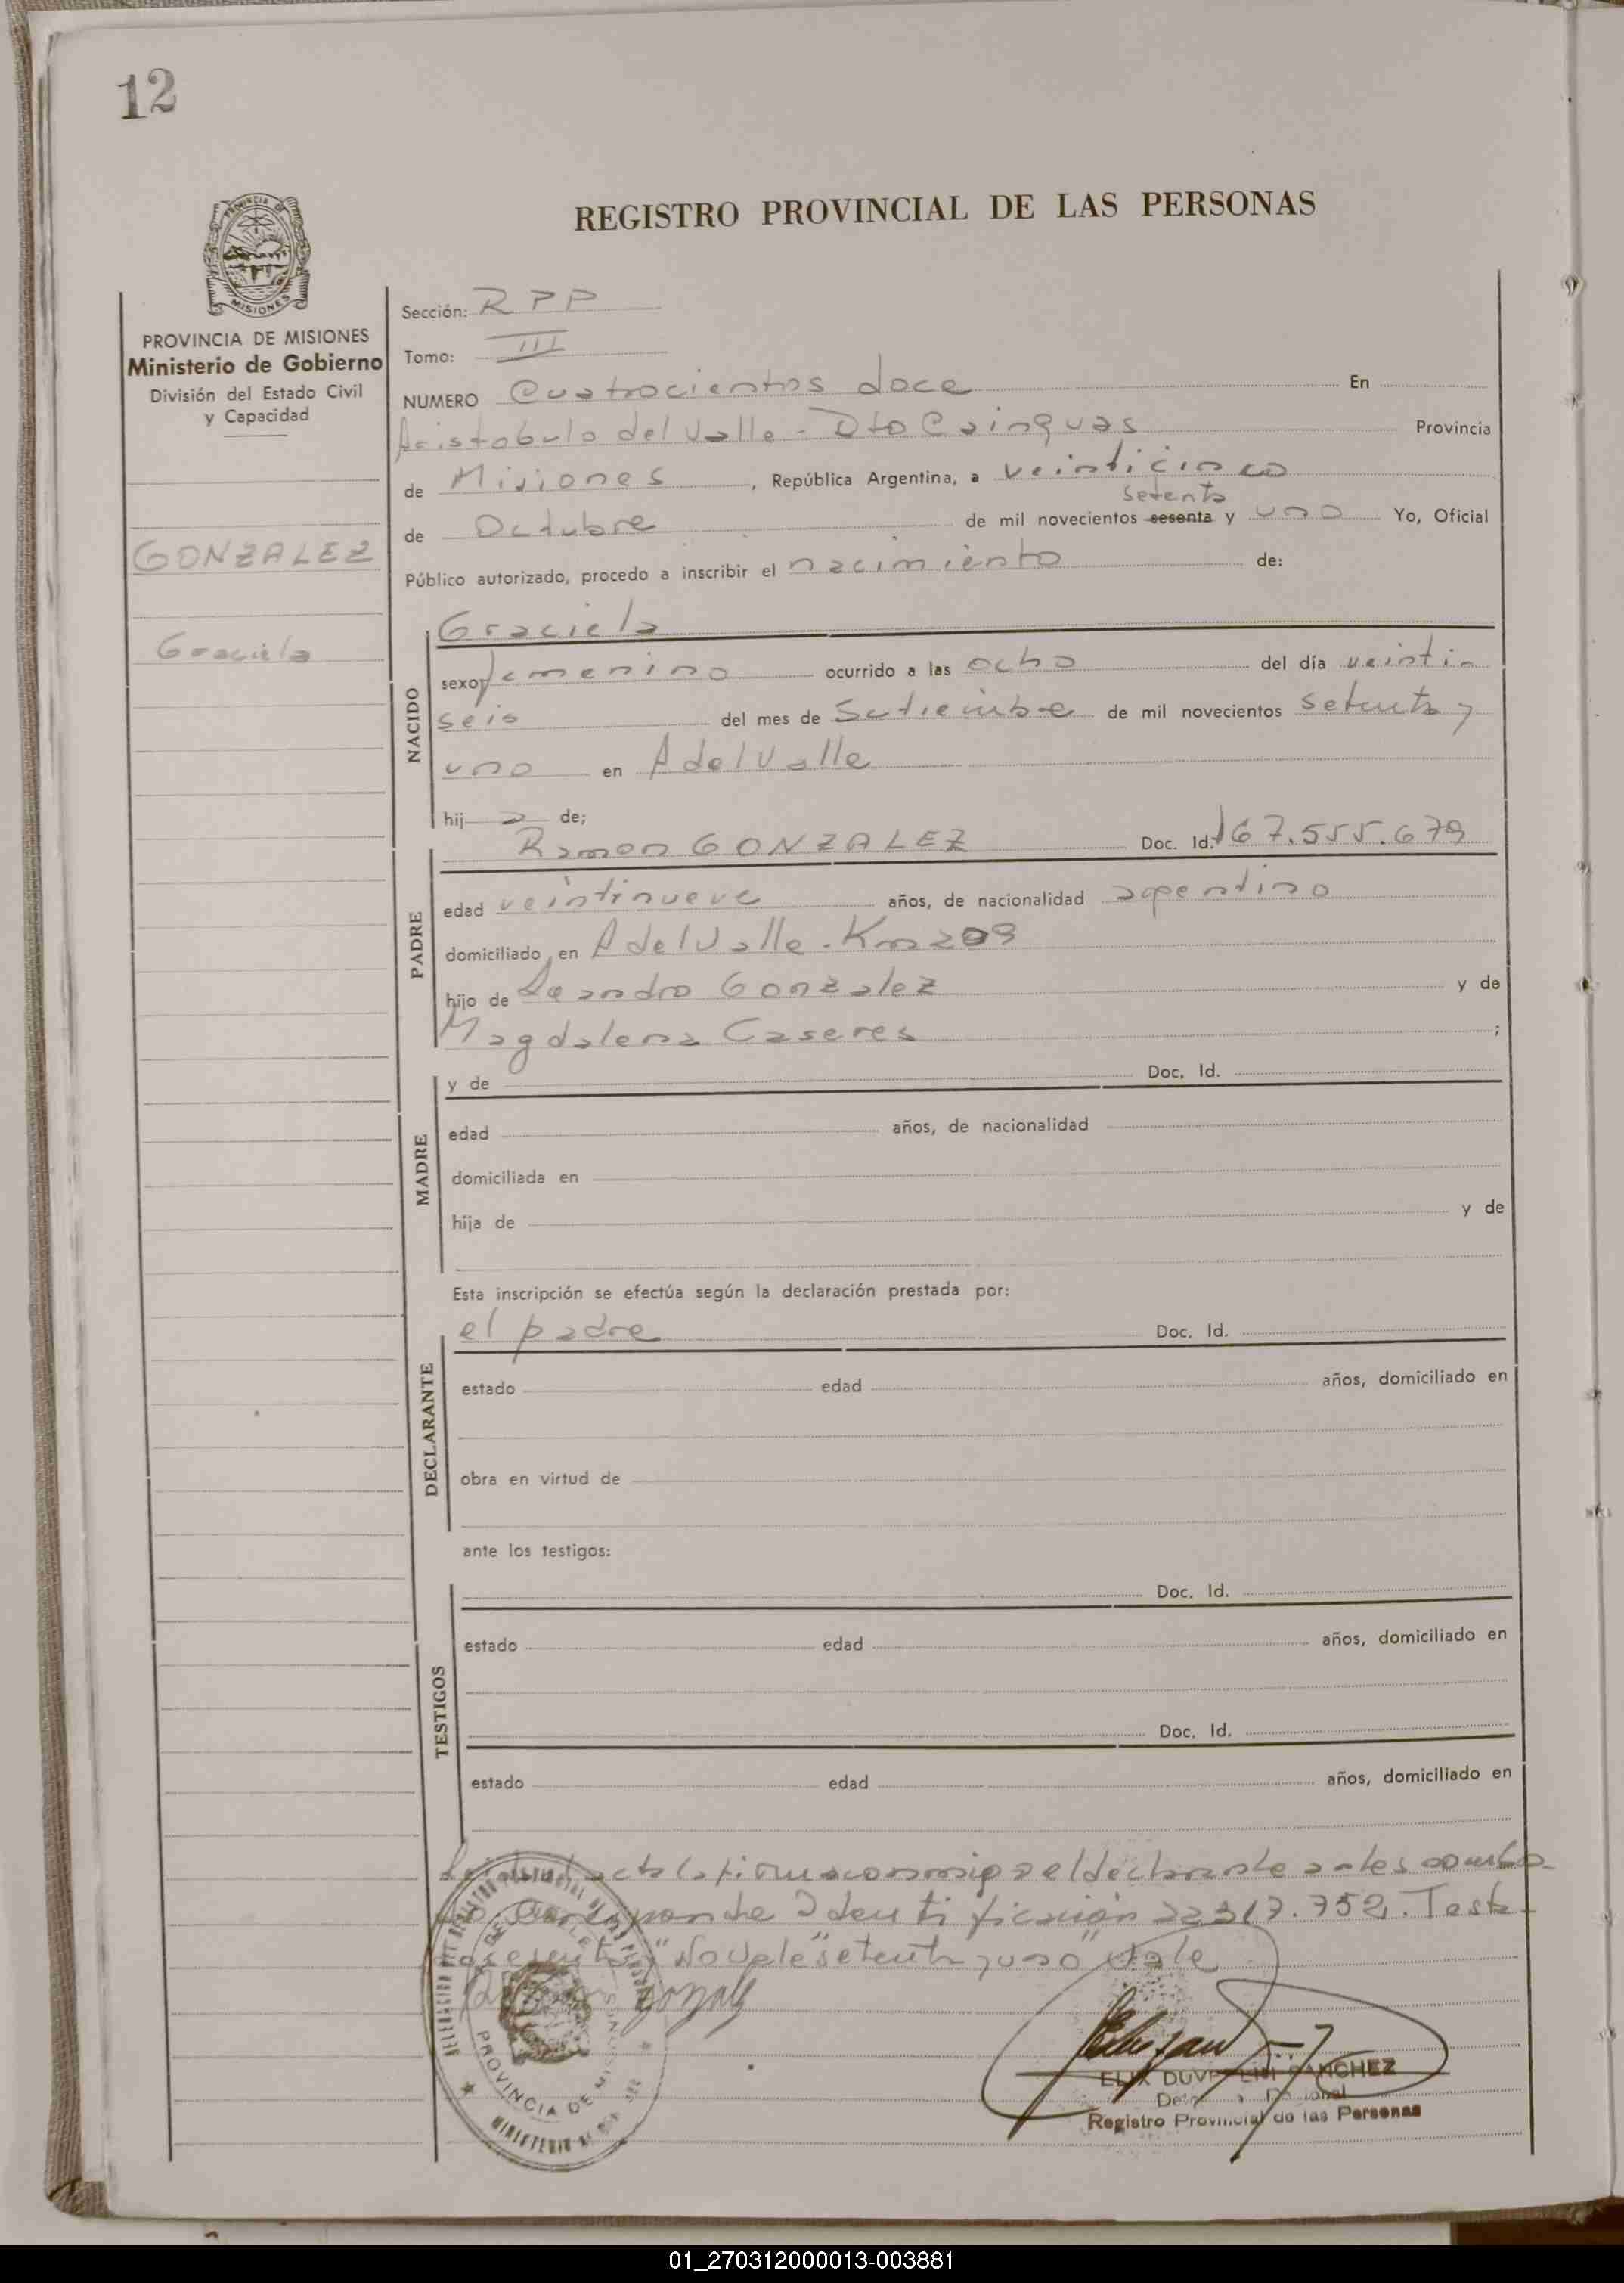 12
REGISTRO PROVINCIAL DE LAS PERSONAS
PROVINCIA DE
MISIONES
PROVINCIA DE MISIONES
Ministerio de Gobierno
División del Estado Civil
y Capacidad
GONZALEZ
Graciela
Sección: RPP
Tomo: III
NUMERO Cuatrocientos doce En
Aristobulo del Valle - Dto Cainguas Provincia
de Misiones, República Argentina, a veinticinco
setenta
de Octubre de mil novecientos sesenta y uno Yo, Oficial
Público autorizado, procedo a inscribir el nacimiento de:
NACIDO
Graciela
sexo femenino ocurrido a las ocho del día veinti-
seis del mes de Setiembre de mil novecientos setenta y
uno en A del Valle
hij a de;
PADRE
Ramon GONZALEZ Doc. Id. 167.555.679
edad veintinueve años, de nacionalidad argentino
domiciliado en A del Valle. Km 209
hijo de Leandro Gonzalez y de
Magdalena Caseres ;
MADRE
y de Doc. Id.
edad años, de nacionalidad
domiciliada en
hija de y de
Esta inscripción se efectúa según la declaración prestada por:
DECLARANTE
el padre Doc. Id.
estado edad años, domiciliado en
obra en virtud de
ante los testigos:
TESTIGOS
Doc. Id.
estado edad años, domiciliado en
Doc. Id.
estado edad años, domiciliado en
acta la firma conmigo el declarante antes nombra-
do Identificación Testa-
"No vale "setenta y uno" Vale
Gonzalez
SANCHEZ
Registro Provincial de las Personas
PROVINCIA DE MISIONES
MINISTERIO DE
01_270312000013-003881